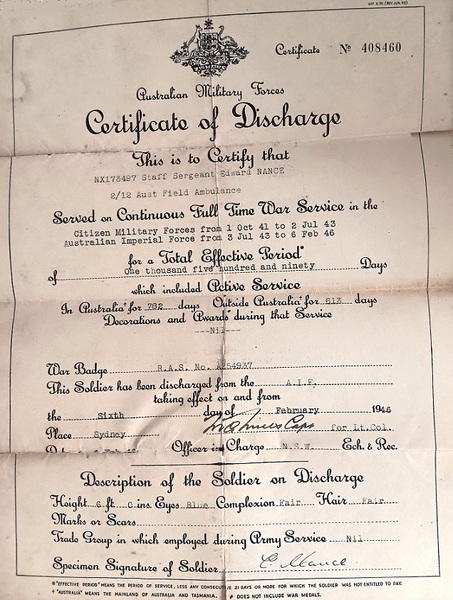 Certificate No 408460
Australian Military Forces
Certificate of Discharge
This is to Certify that
NX173497 Staff Sergeant Edward NANCE
2/12 Aust Field Ambulance
Served on Continuous Full Time War Service in the
Citizen Military Forces from 1 Oct 41 to 2 Jul 43
Australian Imperial Force from 3 Jul 43 to 6 Feb 46
for a Total Effective Period*
of One thousand five hundred and ninety Days
which included Active Service
In Australia† for 782 days Outside Australia† for 613 days
Decorations and Awards‡ during that Service
---Nil---
War Badge R.A.S. No. A254937
This Soldier has been discharged from the A.I.F.
taking effect on and from
the Sixth day of February 1946
Place Sydney Capt for Lt.Col.
Officer in Charge N.S.W. Ech. & Rec.
Description of the Soldier on Discharge
Height 6 ft 0 ins. Eyes Blue Complexion Fair Hair Fair
Marks or Scars
Trade Group in which employed during Army Service Nil
Specimen Signature of Soldier E. Nance
* "EFFECTIVE PERIOD" MEANS THE PERIOD OF SERVICE, LESS ANY CONSECUTIVE 21 DAYS OR MORE FOR WHICH THE SOLDIER WAS NOT ENTITLED TO PAY.
† "AUSTRALIA" MEANS THE MAINLAND OF AUSTRALIA AND TASMANIA. ‡ DOES NOT INCLUDE WAR MEDALS.